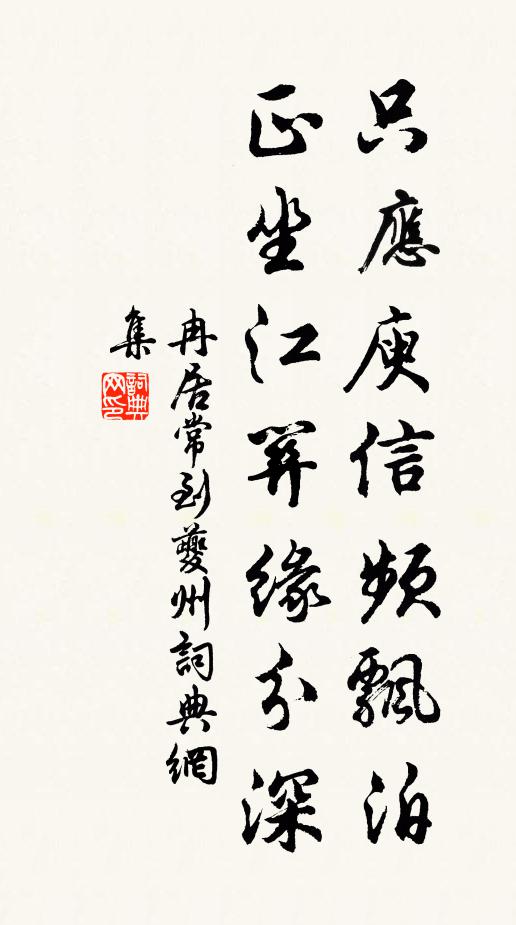 只應庾信頻飄泊
正坐江關緣分深
冉居常到夔州詞典網
集
詞典網印